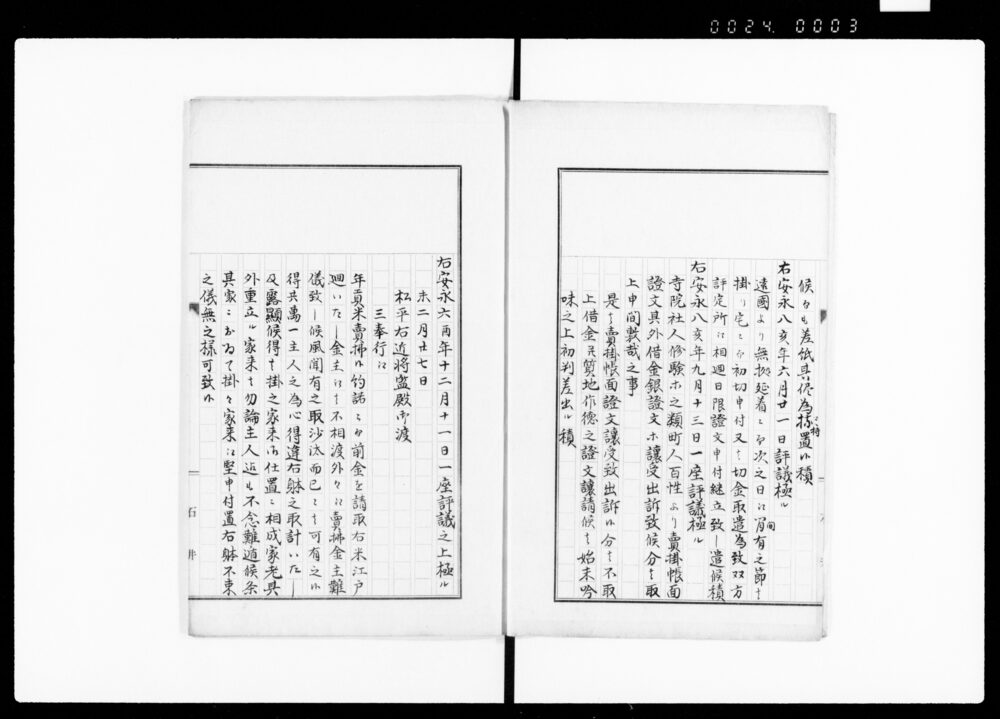 0024. 0003
候ハヽ差紙其侭為捺置ル積
右安永八亥年六月廿一日評議極ル
遠國より無拠延着ニ而次之日江届有之節者
掛り宅ニ而初切申付又者切金取遣為致双方
評定所江相廻日限證文申付継立致し遣候積
右安永八亥年九月十三日一座評議極ル
寺院社人修験ホ之類町人百性より賣掛帳面
證文其外借金銀證文ホ譲受出訴致候分者取
上申間敷哉之事
是者賣掛帳面證文譲受致出訴ル分者不取
上借金并質地作徳之證文譲請候者始末吟
味之上初判差出ル積
右安永六酉年十二月十一日一座評議之上極ル
未二月廿七日
松平右近将監殿御渡
三奉行江
年貢米賣拂ル約諾ニ而前金を請取右米江戸
廻いたし金主江者不相渡外々江賣拂金主難
儀致し候風聞有之取沙汰而已ニ者可有之ル
得共萬一主人之為心得違右躰之取計いたし
及露顕候得者掛之家来御仕置ニ相成家老其
外重立ル家来者勿論主人迄も不念難遁候条
其家ニおゐて掛々家来江堅申付置右躰不束
之儀無之様可致ル
石井